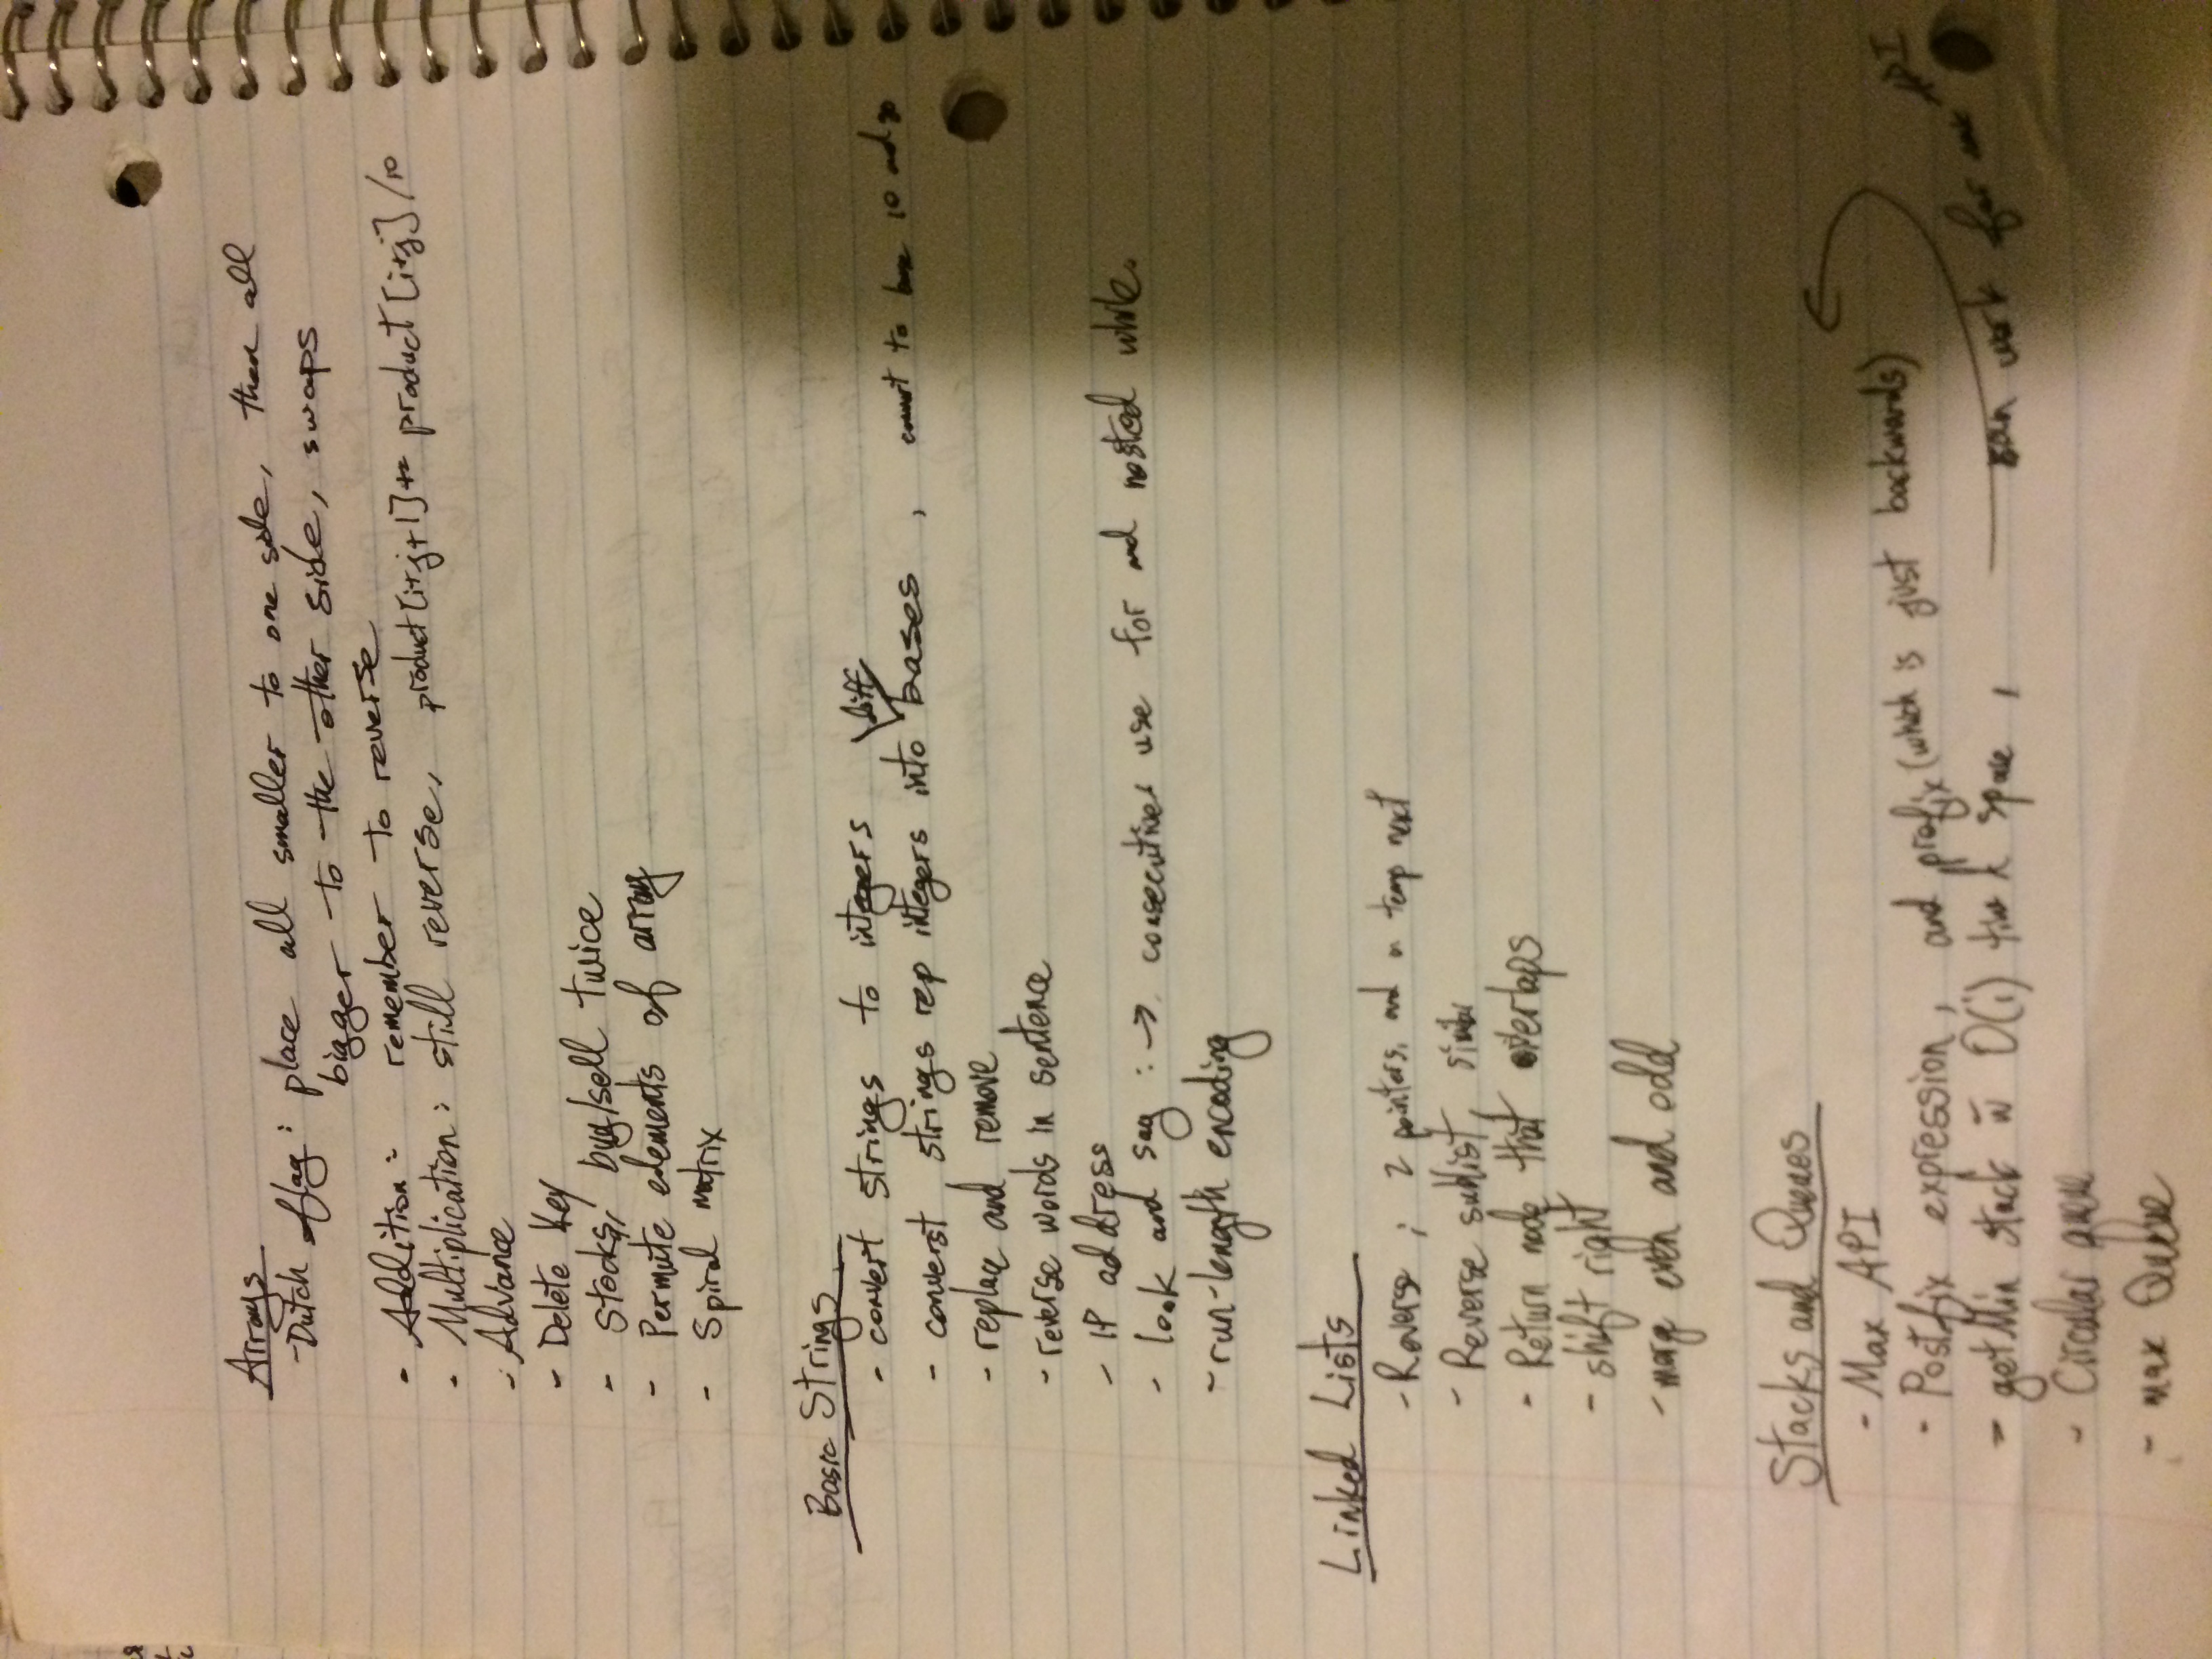 Arrays
- Dutch flag : place all smaller to one side, then all
bigger to the other side, swaps
- Addition : remember to reverse
- Multiplication : still reverse, product[i+j+1] += product[i+j]/10
- Advance
- Delete Key
- Stocks, buy/sell twice
- Permute elements of array
- Spiral matrix
Basic Strings
- convert strings to integers
diff
- converst strings rep integers into bases , convert to base 10 and go
- replace and remove
- reverse words in sentence
- IP address
- look and say : → consecutives use for and nested while.
- run-length encoding
Linked Lists
- Reverse ; 2 pointers, and a temp next
- Reverse sublist, similar
- Return node that overlaps
- shift right
- merge even and odd
Stacks and Queues
- Max API
- Postfix expression, and prefix (which is just backwards)
- getMin stack in O(1) time & space , can work for max API
- Circular queue
- max Queue